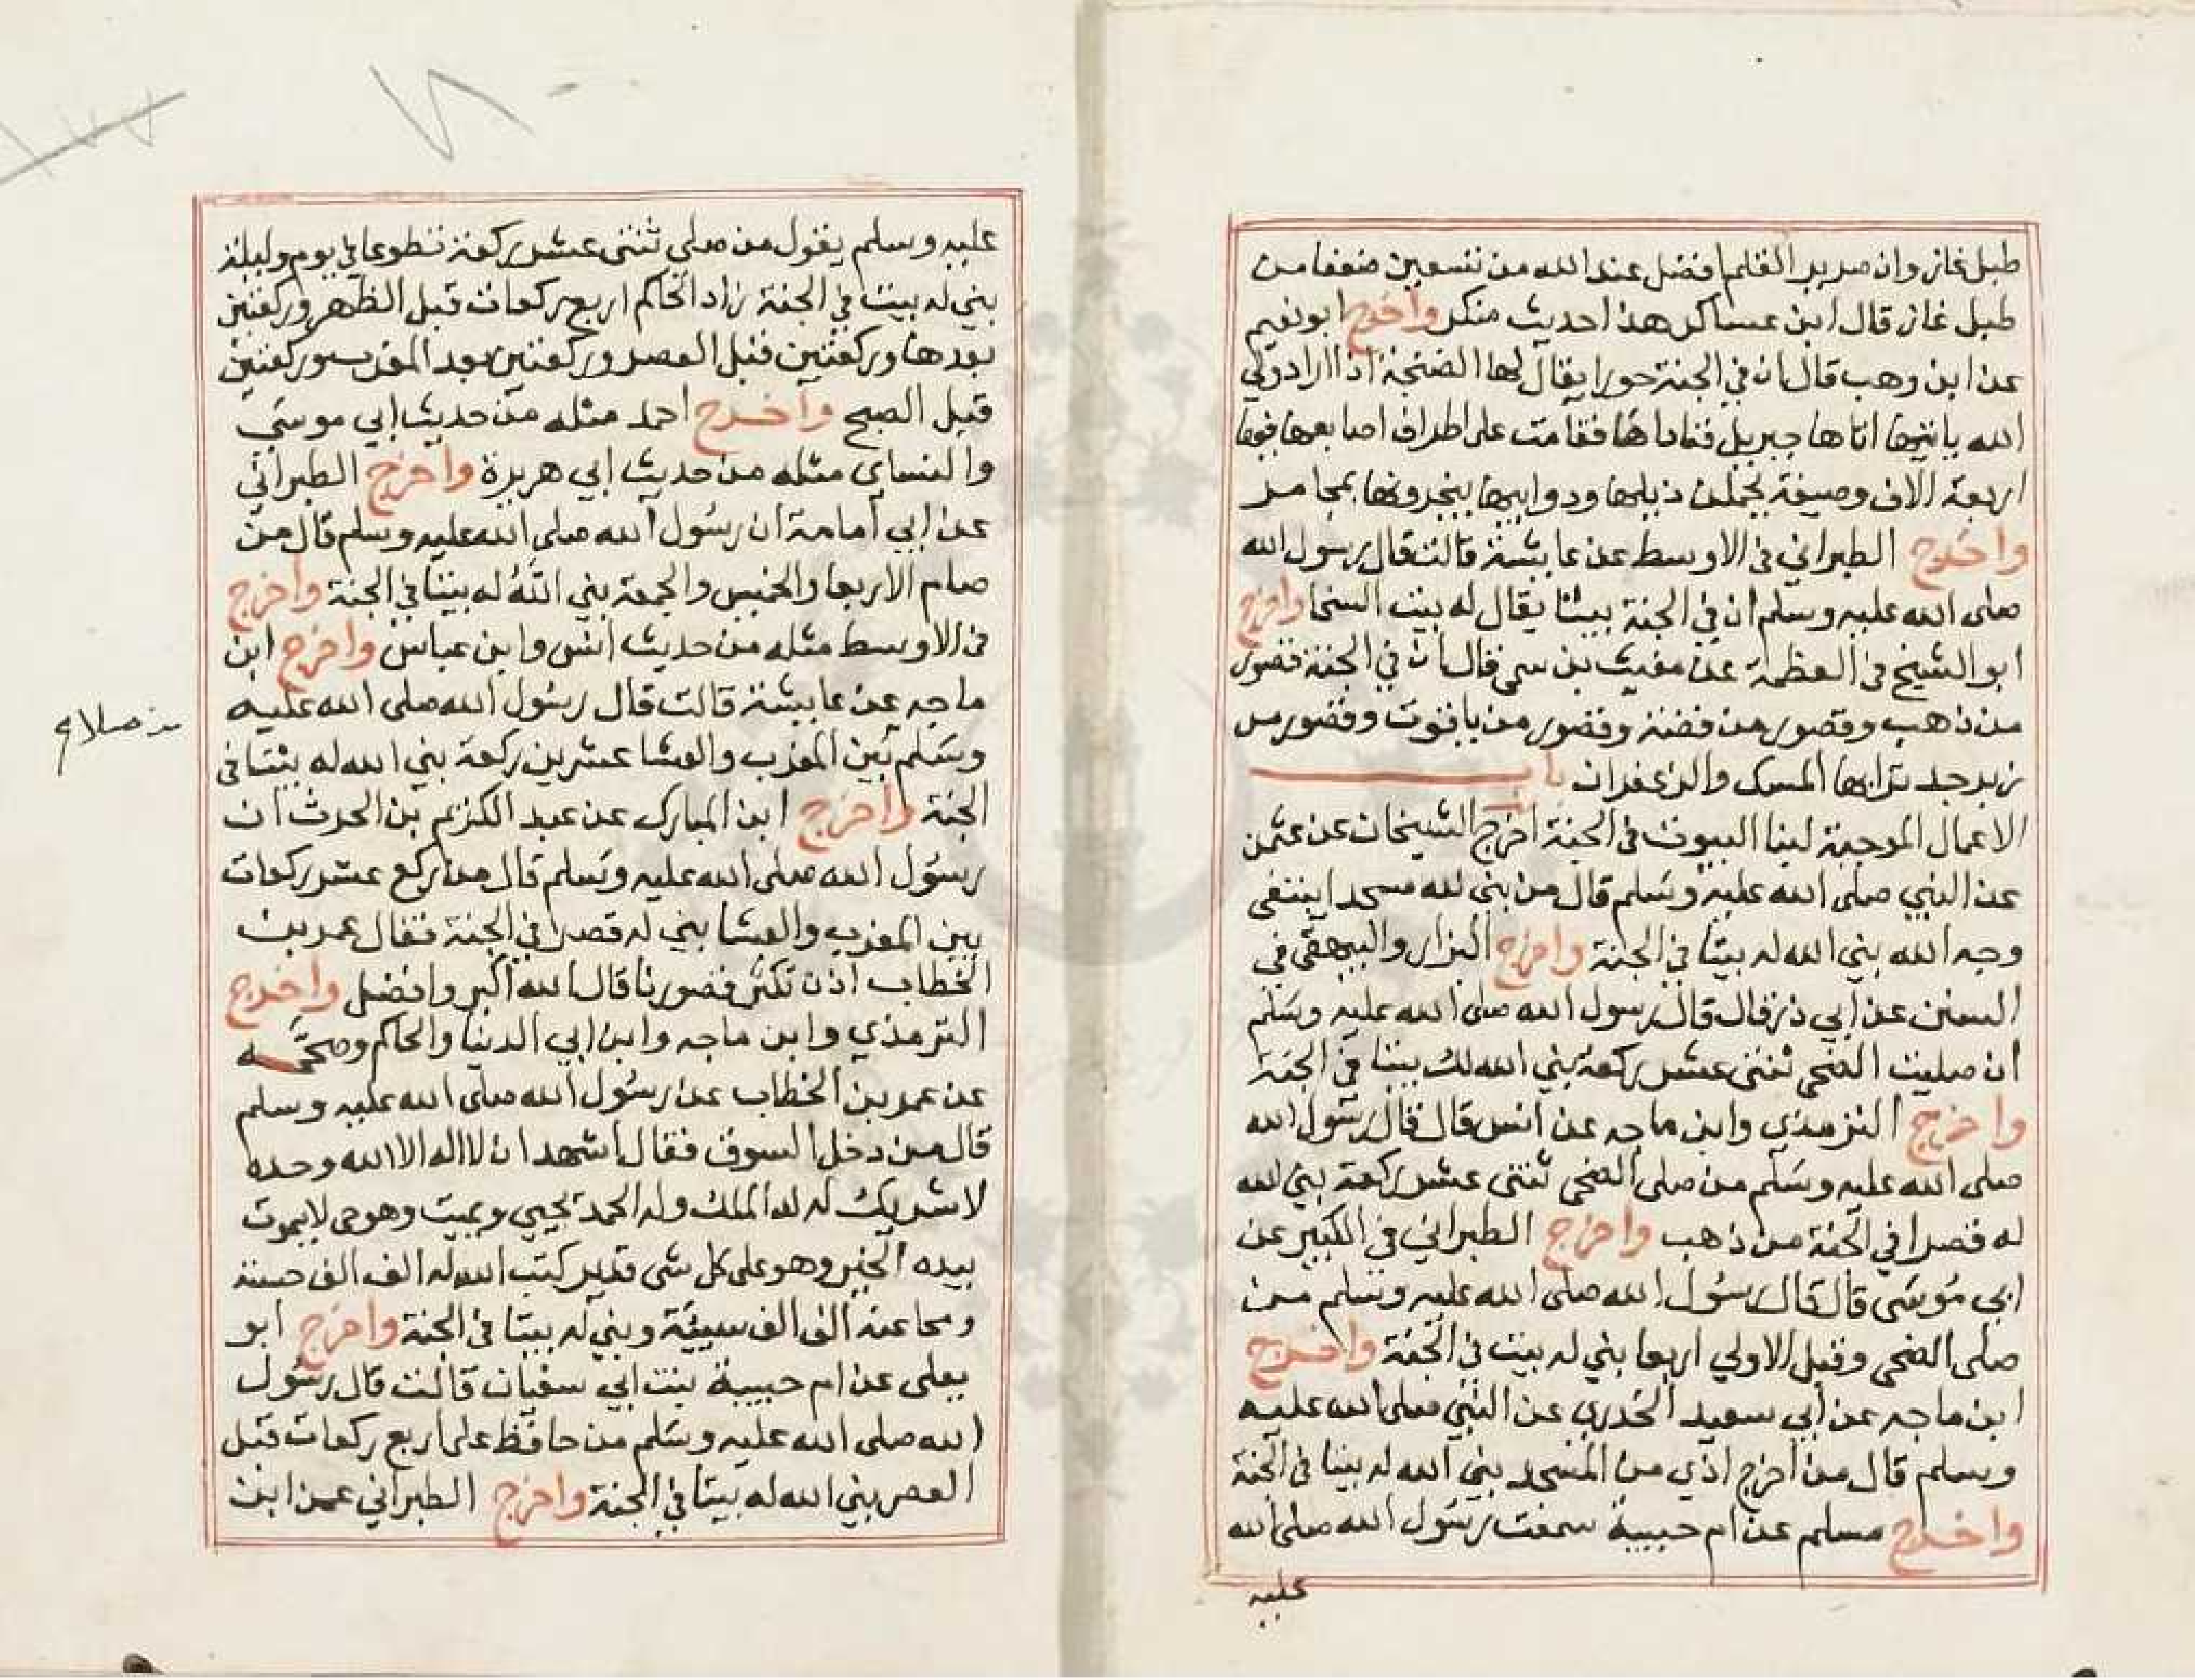 طبل غاز وان صرير القلم افضل عند الله من تسعين ضعفا من
طبل غاز قال ابن عساكر هذا حديث منكر واخرج ابو نعيم
عن ابن وهب قال ان في الجنة حورا يقال لها اذا اراد ولي
الله ان ياتيها اتاها جبريل فناداها فقامت على اطراف اصابعها فيها
اربعة الاف وصيفة يحملن ذيلها ودوابيها يبخرونها بمجامر
واخرج الطبراني في الاوسط عن عايشة قالت قال رسول الله
صلى الله عليه وسلم ان في الجنة بيتا يقال له بيت السخا واخرج
ابو الشيخ في العظمة عن مغيث بن سمي قال ان في الجنة قصور
من ذهب وقصور من فضة وقصور من ياقوت وقصور من
زبرجد ترابها المسك والزعفران باب
الاعمال الموجبة لبنا البيوت في الجنة اخرج الشيخان عن عثمن
عن النبي صلى الله عليه وسلم قال من بنى لله مسجدا يبتغي
وجه الله بني الله له بيتا في الجنة واخرج البزار والبيهقي في
السنن عن ابي ذر قال قال رسول الله صلى الله عليه وسلم
ان صليت الضحى ثنتى عشر ركعة بني الله لك بيتا في الجنة
واخرج الترمذي وابن ماجه عن انس قال قال رسول الله
صلى الله عليه وسلم من صلى الضحى ثنتى عشر ركعة بني الله
له قصرا في الجنة من ذهب واخرج الطبراني في الكبير عن
ابي موسى قال قال رسول الله صلى الله عليه وسلم من
صلى الضحى وقبل الاولي اربعا بني له بيت في الجنة واخرج
ابن ماجه عن ابي سعيد الخدري عن النبي صلى الله عليه
وسلم قال من اخرج اذي من المسجد بني الله له بيتا في الجنة
واخرج مسلم عن ام حبيبة سمعت رسول الله صلى الله
عليه
عليه وسلم يقول من صلي ثنتى عشر ركعة تطوعا في يوم وليلة
بني له بيت في الجنة زاد الحاكم اربع ركعات قبل الظهر وركعتين
بعدها وركعتين قبل العصر وركعتين بعد المغرب وركعتين
قبل الصبح واخرج احمد مثله من حديث ابي موسي
والنساي مثله من حديث ابي هريرة واخرج الطبراني
عن ابي امامة ان رسول الله صلى الله عليه وسلم قال من
صام الاربعا والخميس والجمعة بني الله له بيتا في الجنة واخرج
في الاوسط مثله من حديث انس وابن عباس واخرج ابن
ماجه عن عايشة قالت قال رسول الله صلى الله عليه
وسلم بين المغرب والعشا عشرين ركعة بني الله له بيتا في
الجنة واخرج ابن المبارك عن عبد الكريم بن الحرث ان
رسول الله صلى الله عليه وسلم قال من ركع عشر ركعات
بين المغرب والعشا بني له قصرا في الجنة فقال عمر بن
الخطاب اذن تكثر قصورنا قال الله اكبر وافضل واخرج
الترمذي وابن ماجه وابن ابي الدنيا والحاكم وصححه
عن عمر بن الخطاب عن رسول الله صلى الله عليه وسلم
قال من دخل السوق فقال اشهد ان لا اله الا الله وحده
لا شريك له له الملك وله الحمد يحيي ويميت وهو حي لا يموت
بيده الخير وهو على كل شي قدير كتب الله له الف الف حسنة
ومحا عنه الف الف سيئة وبني له بيتا في الجنة واخرج ابو
يعلى عن ام حبيبة بنت ابي سفيان قالت قال رسول
الله صلى الله عليه وسلم من حافظ على اربع ركعات قبل
العصر بني الله له بيتا في الجنة واخرج الطبراني عن ابن